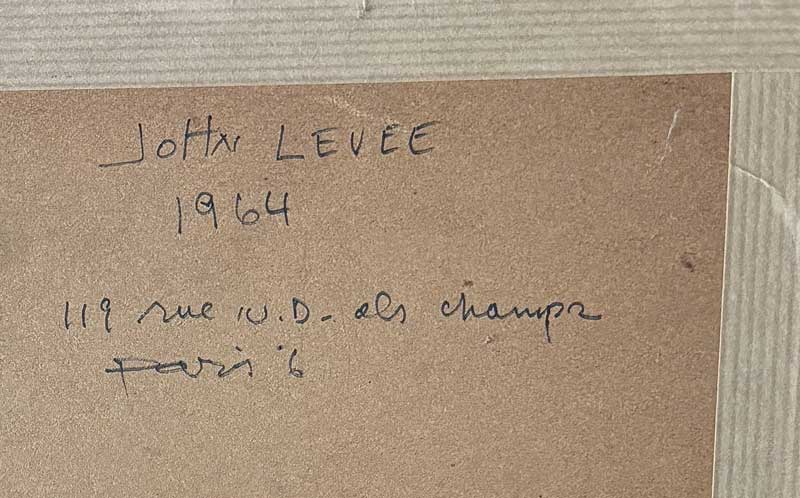 JOHN LEVEE
1964
119 rue N.D. des champs
Paris 6